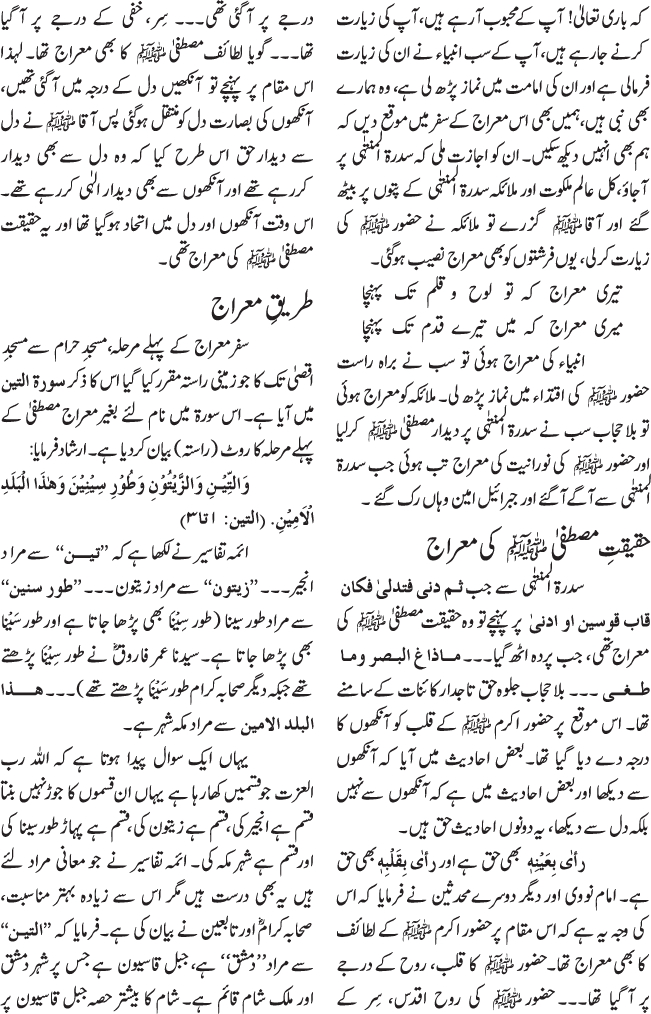 کہ باری تعالیٰ! آپ کے محبوب آرہے ہیں، آپ کی زیارت
کرنے جارہے ہیں، آپ کے سب انبیاء نے ان کی زیارت
فرمالی ہے اور ان کی امامت میں نماز پڑھ لی ہے، وہ ہمارے
بھی نبی ہیں، ہمیں بھی اس معراج کے سفر میں موقع دیں کہ
ہم بھی انہیں دیکھ سکیں۔ ان کو اجازت ملی کہ سدرۃ المنتھی پر
آجاؤ، کل عالم ملکوت اور ملائکہ سدرۃ المنتھی کے پتوں پر بیٹھ
گئے اور آقا ﷺ گزرے تو ملائکہ نے حضور ﷺ کی
زیارت کرلی، یوں فرشتوں کو بھی معراج نصیب ہوگئی۔
تیری معراج کہ تو لوح و قلم تک پہنچا
میری معراج کہ میں تیرے قدم تک پہنچا
انبیاء کی معراج ہوئی تو سب نے براہ راست
حضور ﷺ کی اقتداء میں نماز پڑھ لی۔ ملائکہ کو معراج ہوئی
تو بلا حجاب سب نے سدرۃ المنتھی پر دیدار مصطفیٰ ﷺ کرلیا
اور حضور ﷺ کی نورانیت کی معراج تب ہوئی جب سدرۃ
المنتھی سے آگے آگئے اور جبرائیل امین وہاں رک گئے ۔
حقیقتِ مصطفیٰ ﷺ کی معراج
سدرۃ المنتھی سے جب ثم دنی فتدلیٰ فکان
قاب قوسین او ادنیٰ پر پہنچے تو وہ حقیقت مصطفیٰ ﷺ کی
معراج تھی، جب پردہ اٹھ گیا۔۔۔ ماذاغ البصر وما
طغی ۔۔۔ بلا حجاب جلوہ حق تاجدار کائنات کے سامنے
تھا۔ اس موقع پر حضور اکرم ﷺ کے قلب کو آنکھوں کا
درجہ دے دیا گیا تھا۔ بعض احادیث میں آیا کہ آنکھوں
سے دیکھا اور بعض احادیث میں ہے کہ آنکھوں سے نہیں
بلکہ دل سے دیکھا، یہ دونوں احادیث حق ہیں۔
رأیٰ بِعَیْنِہٖ بھی حق ہے اور رأیٰ بِقَلْبِہٖ بھی حق
ہے۔ امام نووی اور دیگر دوسرے محدثین نے فرمایا کہ اس
کی وجہ یہ ہے کہ اس مقام پر حضور اکرم ﷺ کے لطائف
کا بھی معراج تھا۔ حضور ﷺ کا قلب، روح کے درجے
پر آگیا تھا۔۔۔ حضور ﷺ کی روح اقدس، سِر کے
درجے پر آگئی تھی۔۔۔ سِر، خفی کے درجے پر آگیا
تھا۔۔۔ گویا لطائف مصطفیٰ ﷺ کا بھی معراج تھا۔ لہذا
اس مقام پر پہنچے تو آنکھیں دل کے درجہ میں آگئی تھیں،
آنکھوں کی بصارت دل کو منتقل ہوگئی پس آقا ﷺ نے دل
سے دیدار حق اس طرح کیا کہ وہ دل سے بھی دیدار
کررہے تھے اور آنکھوں سے بھی دیدار الٰہی کررہے تھے۔
اس وقت آنکھوں اور دل میں اتحاد ہوگیا تھا اور یہ حقیقت
مصطفیٰ ﷺ کی معراج تھی۔
طریقِ معراج
سفر معراج کے پہلے مرحلہ، مسجدِ حرام سے مسجدِ
اقصیٰ تک کا جو زمینی راستہ مقرر کیا گیا اس کا ذکر سورۃ التین
میں آیا ہے۔ اس سورۃ میں نام لئے بغیر معراج مصطفیٰ کے
پہلے مرحلہ کا روٹ (راستہ) بیان کردیا ہے۔ ارشاد فرمایا:
وَالتِّیْنِ وَالزَّیْتُوْنِ وَطُوْرِ سِیْنِیْنَ وَھٰذَا الْبَلَدِ
الْاَمِیْنِ. (التین: ۱ تا ۳)
ائمہ تفاسیر نے لکھا ہے کہ ’’تین‘‘ سے مراد
انجیر۔۔۔ ’’زیتون‘‘ سے مراد زیتون۔۔۔ ’’طور سنین‘‘
سے مراد طور سینا (طور سِیْنَا بھی پڑھا جاتا ہے اور طور سَیْنَا
بھی پڑھا جاتا ہے۔ سیدنا عمر فاروقؓ نے طور سِیْنَا پڑھتے
تھے جبکہ دیگر صحابہ کرام طور سَیْنَا پڑھتے تھے)۔۔۔ ھذا
البلد الامین سے مراد مکہ شہر ہے۔
یہاں ایک سوال پیدا ہوتا ہے کہ اللہ رب
العزت جو قسمیں کھارہا ہے یہاں ان قسموں کا جوڑ نہیں بنتا
قسم ہے انجیر کی، قسم ہے زیتون کی، قسم ہے پہاڑ طور سینا کی
اور قسم ہے شہر مکہ کی۔ ائمہ تفاسیر نے جو معانی مراد لئے
ہیں یہ بھی درست ہیں مگر اس سے زیادہ بہتر مناسبت،
صحابہ کرامؓ اور تابعین نے بیان کی ہے۔ فرمایا کہ ’’التین‘‘
سے مراد ’’دمشق‘‘ ہے، جبل قاسیون ہے جس پر شہر دمشق
اور ملک شام قائم ہے۔ شام کا بیشتر حصہ جبل قاسیون پر